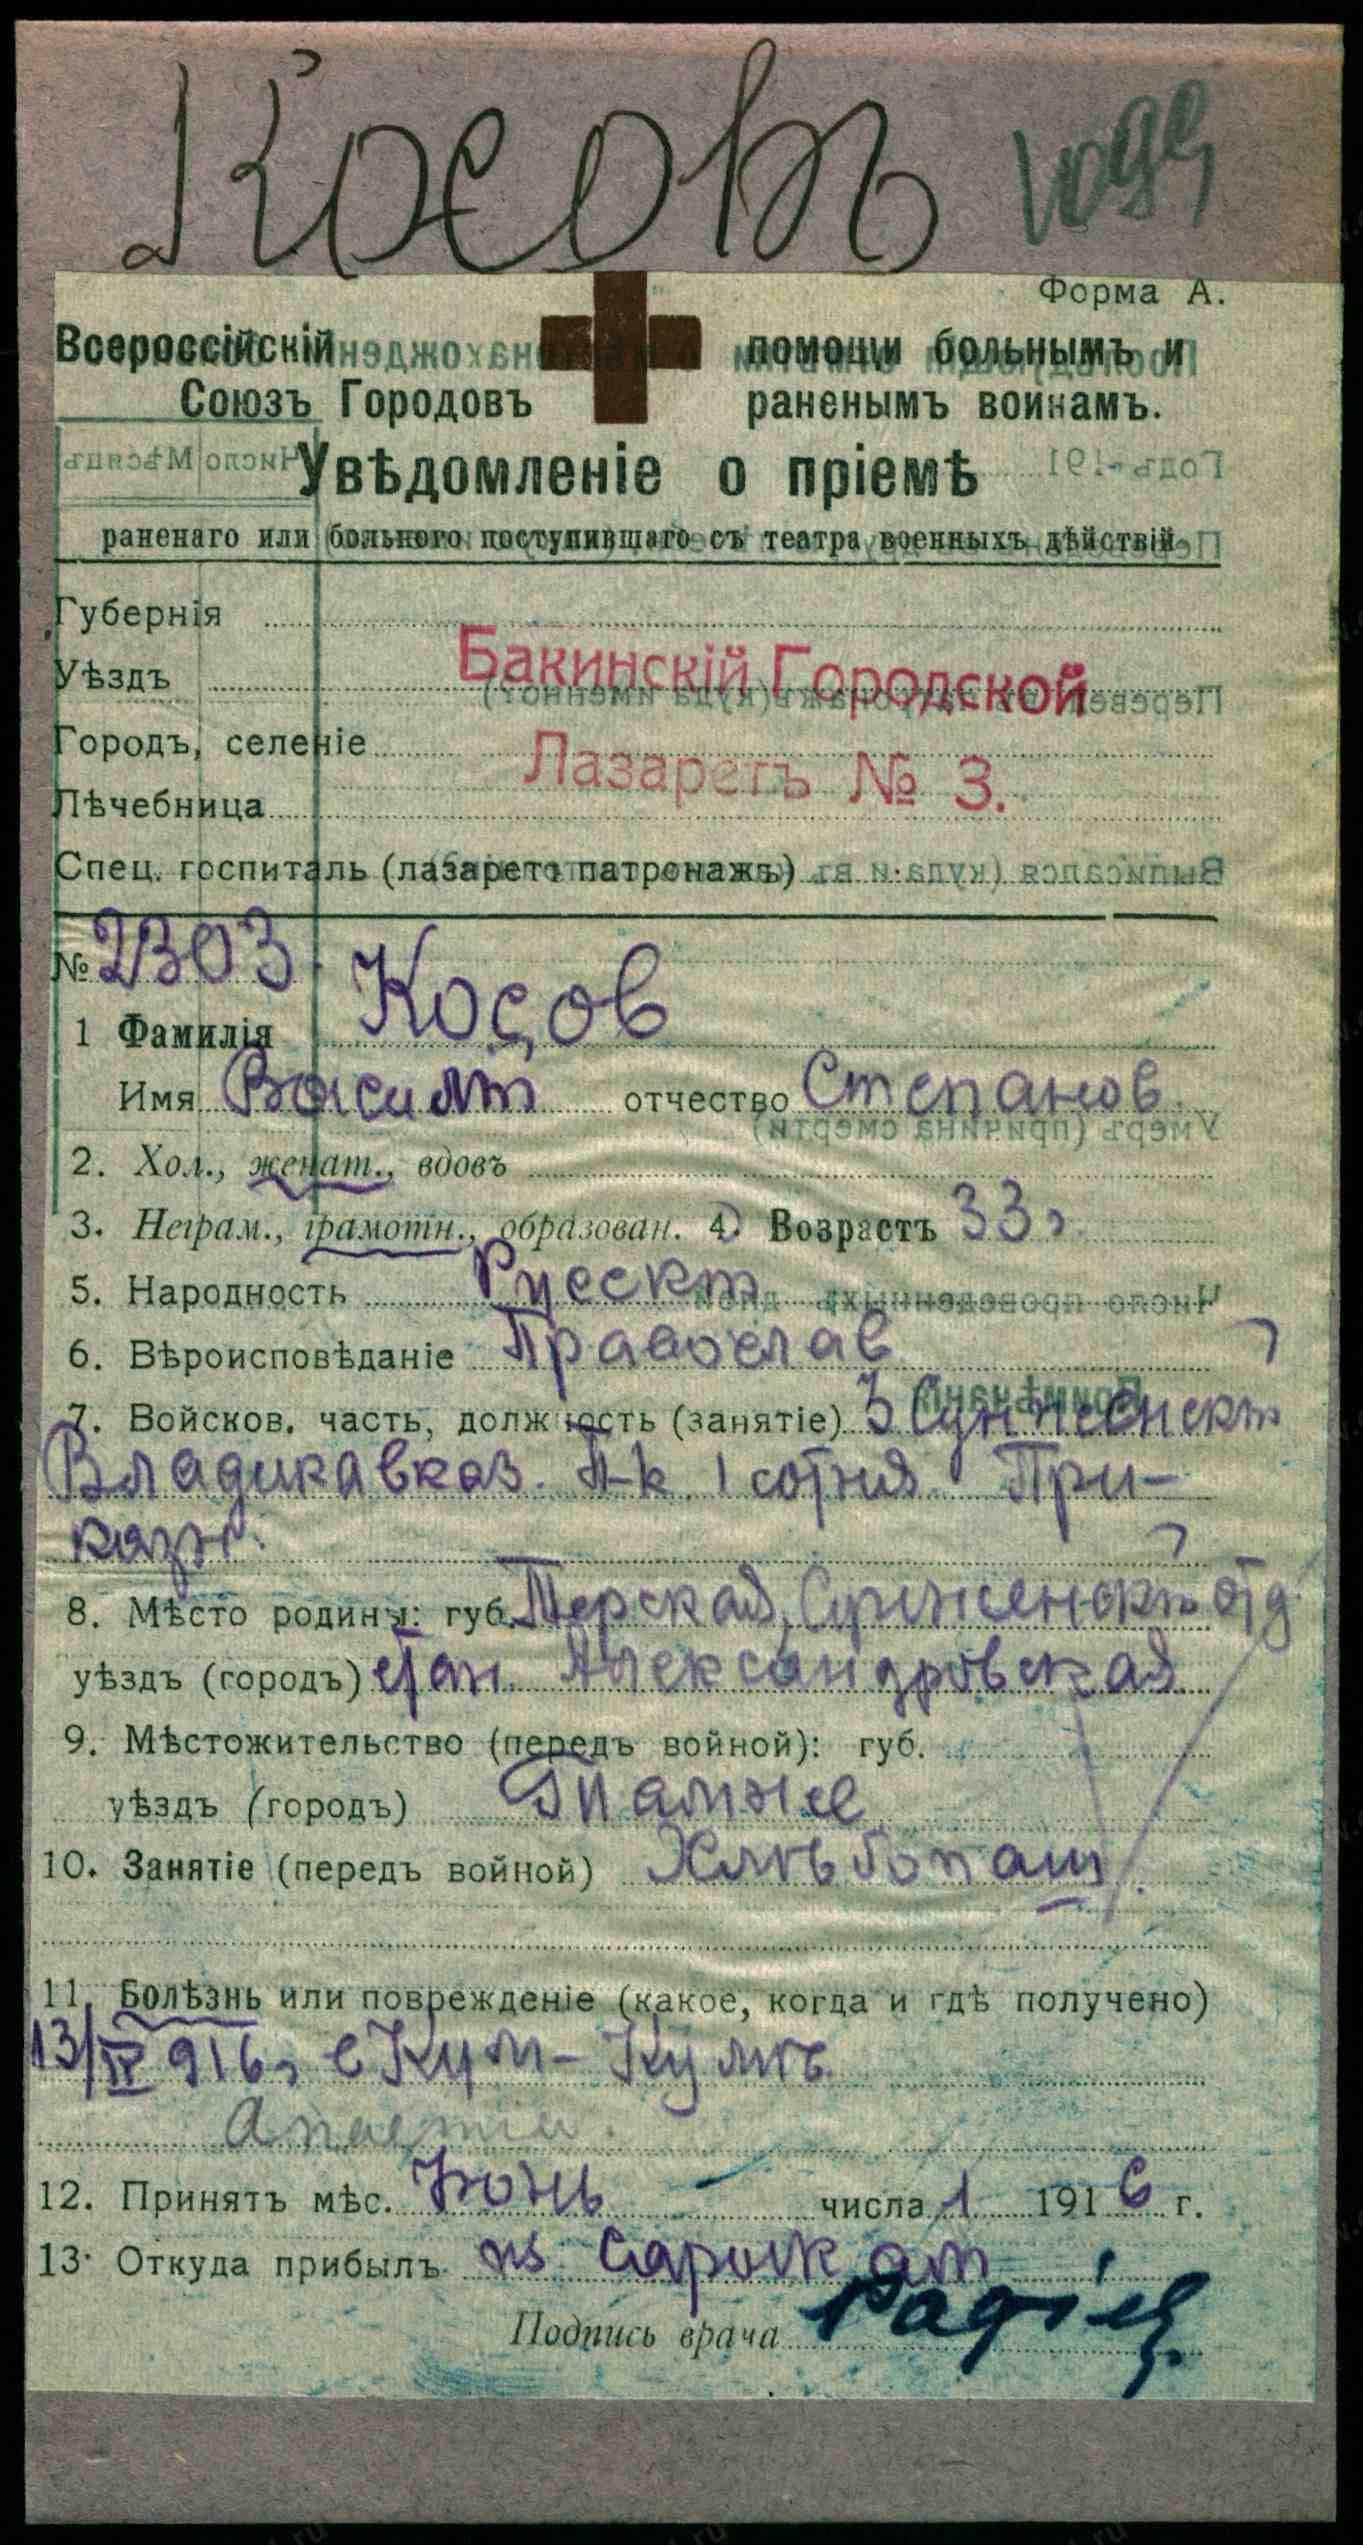 Косовъ
Форма А.
Всероссійскій помощи больнымъ и
Союзъ Городовъ раненымъ воинамъ.
Увѣдомленіе о пріемѣ
раненаго или больного поступившаго съ театра военныхъ дѣйствій
Губернія
Уѣздъ Бакинскій Городской
Городъ, селеніе
Лазаретъ № 3.
Лѣчебница
Спец. госпиталь (лазаретъ патронажъ)
№ 2303
1 Фамилія Косов
Имя Василій отчество Степанов
2. Хол., женат., вдовъ
3. Неграм., грамотн., образован. 4. Возрастъ 33
5. Народность Русскій
6. Вѣроисповѣданіе Православ
7. Войсков. часть, должность (занятіе) 3 Сунженскій
Владикавказ. П-к 1 сотня При-
казн.
8. Мѣсто родины: губ. Терская, Сунженскій отд
уѣздъ (городъ) стан. Александровская
9. Мѣстожительство (передъ войной): губ.
уѣздъ (городъ) Тамже
10. Занятіе (передъ войной) Хлѣбопаш
11. Болѣзнь или поврежденіе (какое, когда и гдѣ получено)
13/IV 916
12. Принятъ мѣс. Іюнь числа 1 1916 г.
13. Откуда прибылъ из Сарыкам
Подпись врача